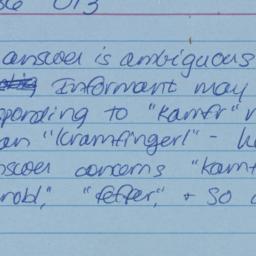 013
answer is ambiguous
Informant may
sponding to "Kamfr" r
an "Kramfingerl" -
swer concerns "Kamf
nobl," "feffer," + so